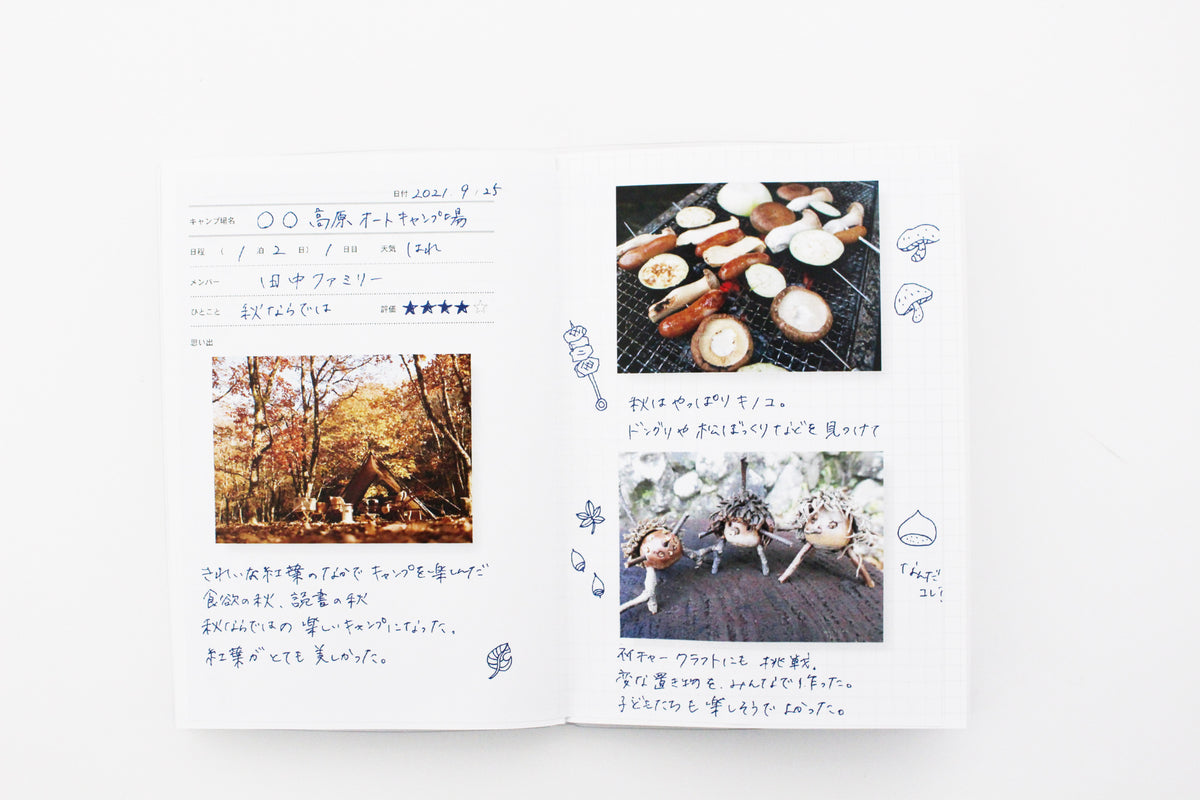 日付 2021.9.25
キャンプ場名 〇〇高原オートキャンプ場
日程 (1泊2日) 1日目 天気 はれ
メンバー 田中ファミリー
ひとこと 秋ならでは 評価 ★★★★☆
思い出
きれいな紅葉のなかでキャンプを楽しんだ
食欲の秋、読書の秋
秋ならではの楽しいキャンプになった。
紅葉がとても美しかった。
秋はやっぱりキノコ。
ドングリや松ぼっくりなどを見つけて
なんだ
コレ!
ネイチャークラフトにも挑戦。
変な置き物を、みんなで作った。
子どもたちも楽しそうでよかった。